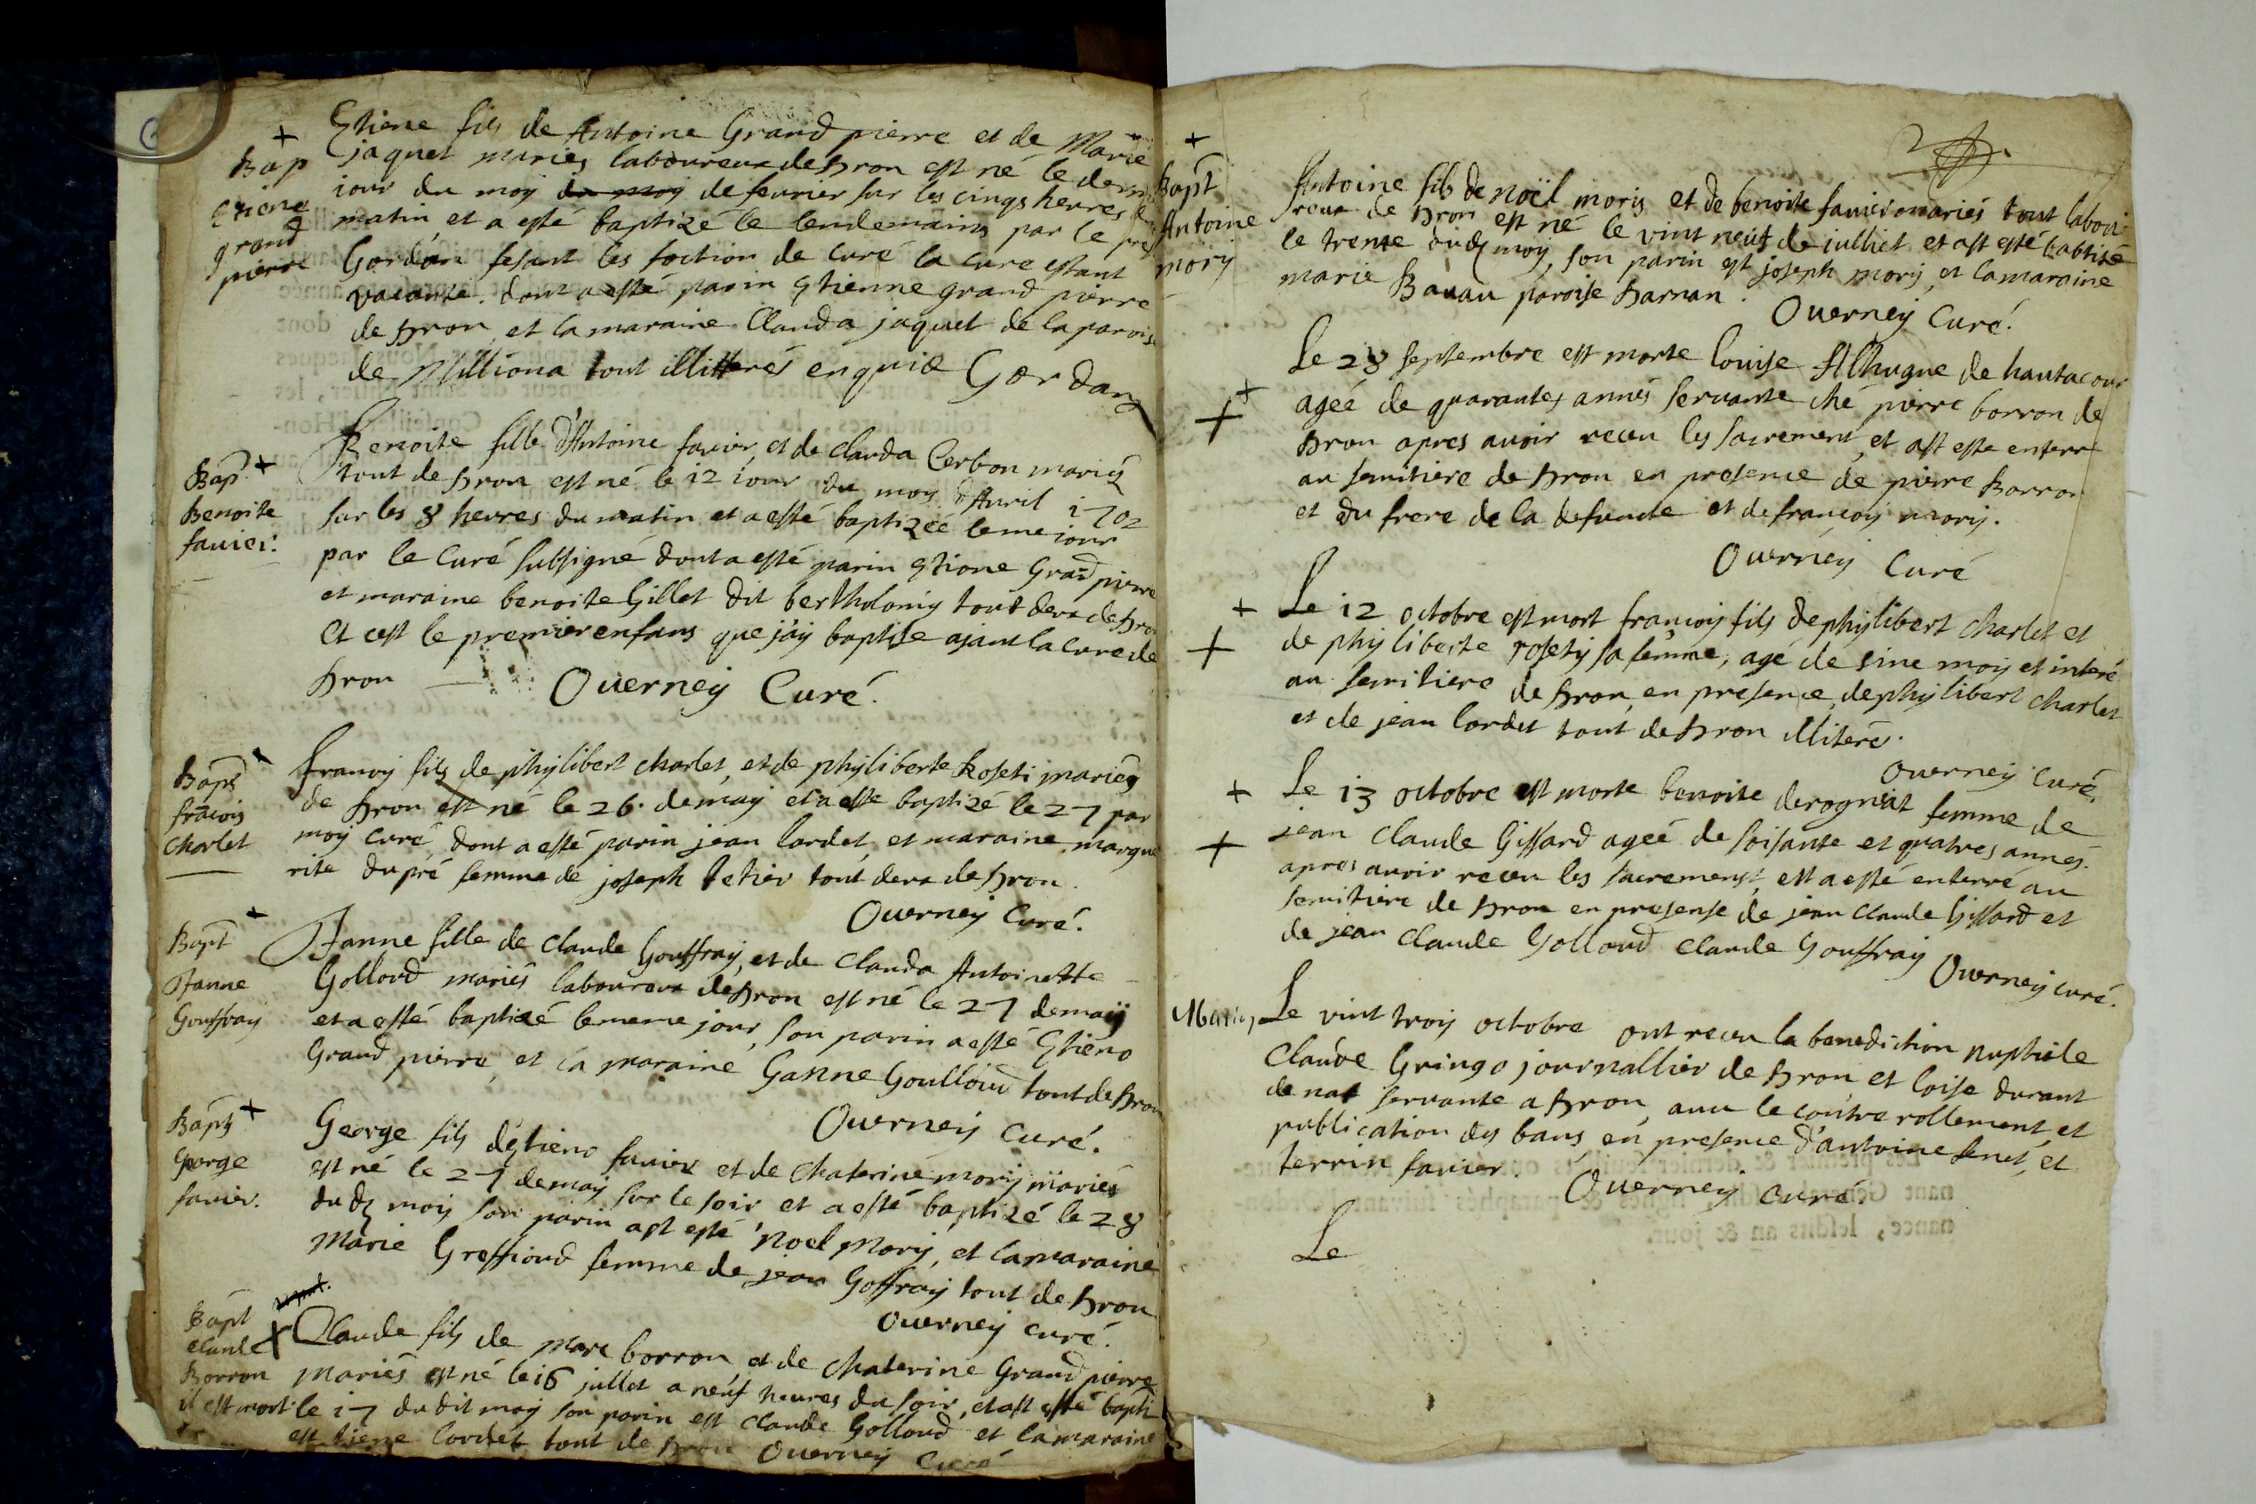 +
Bap
Etiene
grand
pierre
Etiene fils de Antoine Grand pierre et de Marie
jaquet mariés laboureux de Dron est né le dern
iour du moy du moy de feurier sur les cinqs heures du
matin, et a esté baptizé le lendemains par le pre
Gordan fesant les foction de curé la cure estant
vacante. dont a esté parin Etienne grand pierre
de Dron, et la maraine Clauda jaquet de la parois
de Milliona tout illitterés enquis Gordan
Bap +
Benoite
fauier.
Benoite fille d'Antoine fauier, et de clauda Cerbon mariés
tout de Dron est né le 12 iour du moy d'Auril 1702
sur les 8 heures du matin et a esté baptizée le me iour
par le Curé subsigné dont a esté parin Etiene Grād pierre
et maraine benoite Gillet dit bertholomy tout deux de Dro
et cest le premier enfans que j'ay baptise ajant la cure de
Dron Ouerney Curé.
Bapt +
frāçois
Charlet
françoy fils de phylibert charlet, et de phyliberte Roseti mariés
de Dron est né le 26. de may et a este baptizé le 27 par
moy curé, dont a esté parin jean lordet, et maraine margue
rite dupré femme de joseph tetier tout deux de Dron.
Ouerney Curé.
Bapt +
Janne
Gouffray
Janne fille de claude Gouffray, et de clauda Antoinette
Golloud mariés laboureux de Dron est né le 27 de may
et a esté baptizé le meme jour, son parin a esté Etiene
Grand pierre, et la maraine Ganne Goulloud tout de Dron
Ouerney curé.
Bapt +
George
fauier.
George fils d'Etiene fauier et de Chaterine mory mariés
est né le 27 de may sur le soir et a esté baptizé le 28
du dz moy son parin ast esté noel mory, et la maraine
Marie Greffioud femme de jean Goffray tout de Dron
Ouerney curé.
Bapt
claude +
Borron
il est mort
Claude fils de Marc borron, et de Chaterine Grand pierre
Mariés est né le 16 jullet a neuf heures du soir, et ast esté bapti
le 17 du dit moy son parin est claude Golloud et la maraine
est tiene lordet tout de Dron Ouerney Curé
+
Bapt
Antoine
mory
Antoine fils de noël moris et de benoite fauier mariés tout labou
reux de Dron est né le vint neuf de julliet et ast esté babtisé
le trente dudz moy, son parin est joseph mory, et la maraine
marie Bauau paroise Darnan. Ouerney Curé.
Le 28 septembre est morte louise Alhugne de hautacour
+
+
ageé de quarantes annés seruante ché pierre borron de
Dron apres auoir receu les sacrement, et ast este enterr
au semitiere de Dron en presence de pierre Borron
et du frere de la defuncte et de françoy mory.
Ouerney Curé
+
+
Le 12 octobre est mort françoy fils de phylibert charlet et
de phyliberte rosety sa femme, agé de sine moy et interé
au semitiere de Dron, en presence, de phylibert charlet
et de jean lordet tout de Dron illiterés.
Ouerney Curé.
+
+
Le 13 octobre est morte benoite derogniat femme de
jean Claude Giffard ageé de soisante et quatres annés.
apres auoir receu les sacrement, est a esté enterré au
semitiere de Dron en presense de jean claude Giffard et
de jean claude Golloud claude Gouffray
Ouerney curé.
Mariag
Le vint troy octobre ont receu la benediction nuptiale
Claude Gringo journallier de Dron, et loise durant
de nat seruante a Dron, auec le contre rollement, et
publication des bans, en presence d'antoine senet, et
terrin fauier. Ouerney curé.
Le